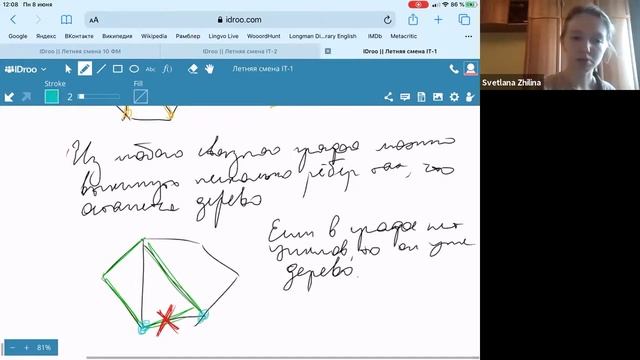 12:08 Пн 8 июня
86 %
AA
idroo.com
Google
Яндекс
ВКонтакте
Википедия
Рамблер
Lingvo Live
WooordHunt
Longman Di...rary English
IMDb
Metacritic
IDroo || Летняя смена 10 ФМ
IDroo || Летняя смена IT-2
IDroo || Летняя смена IT-1
IDroo
Abc
f(x)
Летняя смена IT-1
Stroke
2
Fill
Из любого связного графа можно
выкинуть несколько рёбер так, что
останется дерево
Если в графе нет
циклов, то он уже
дерево.
81%
Svetlana Zhilina